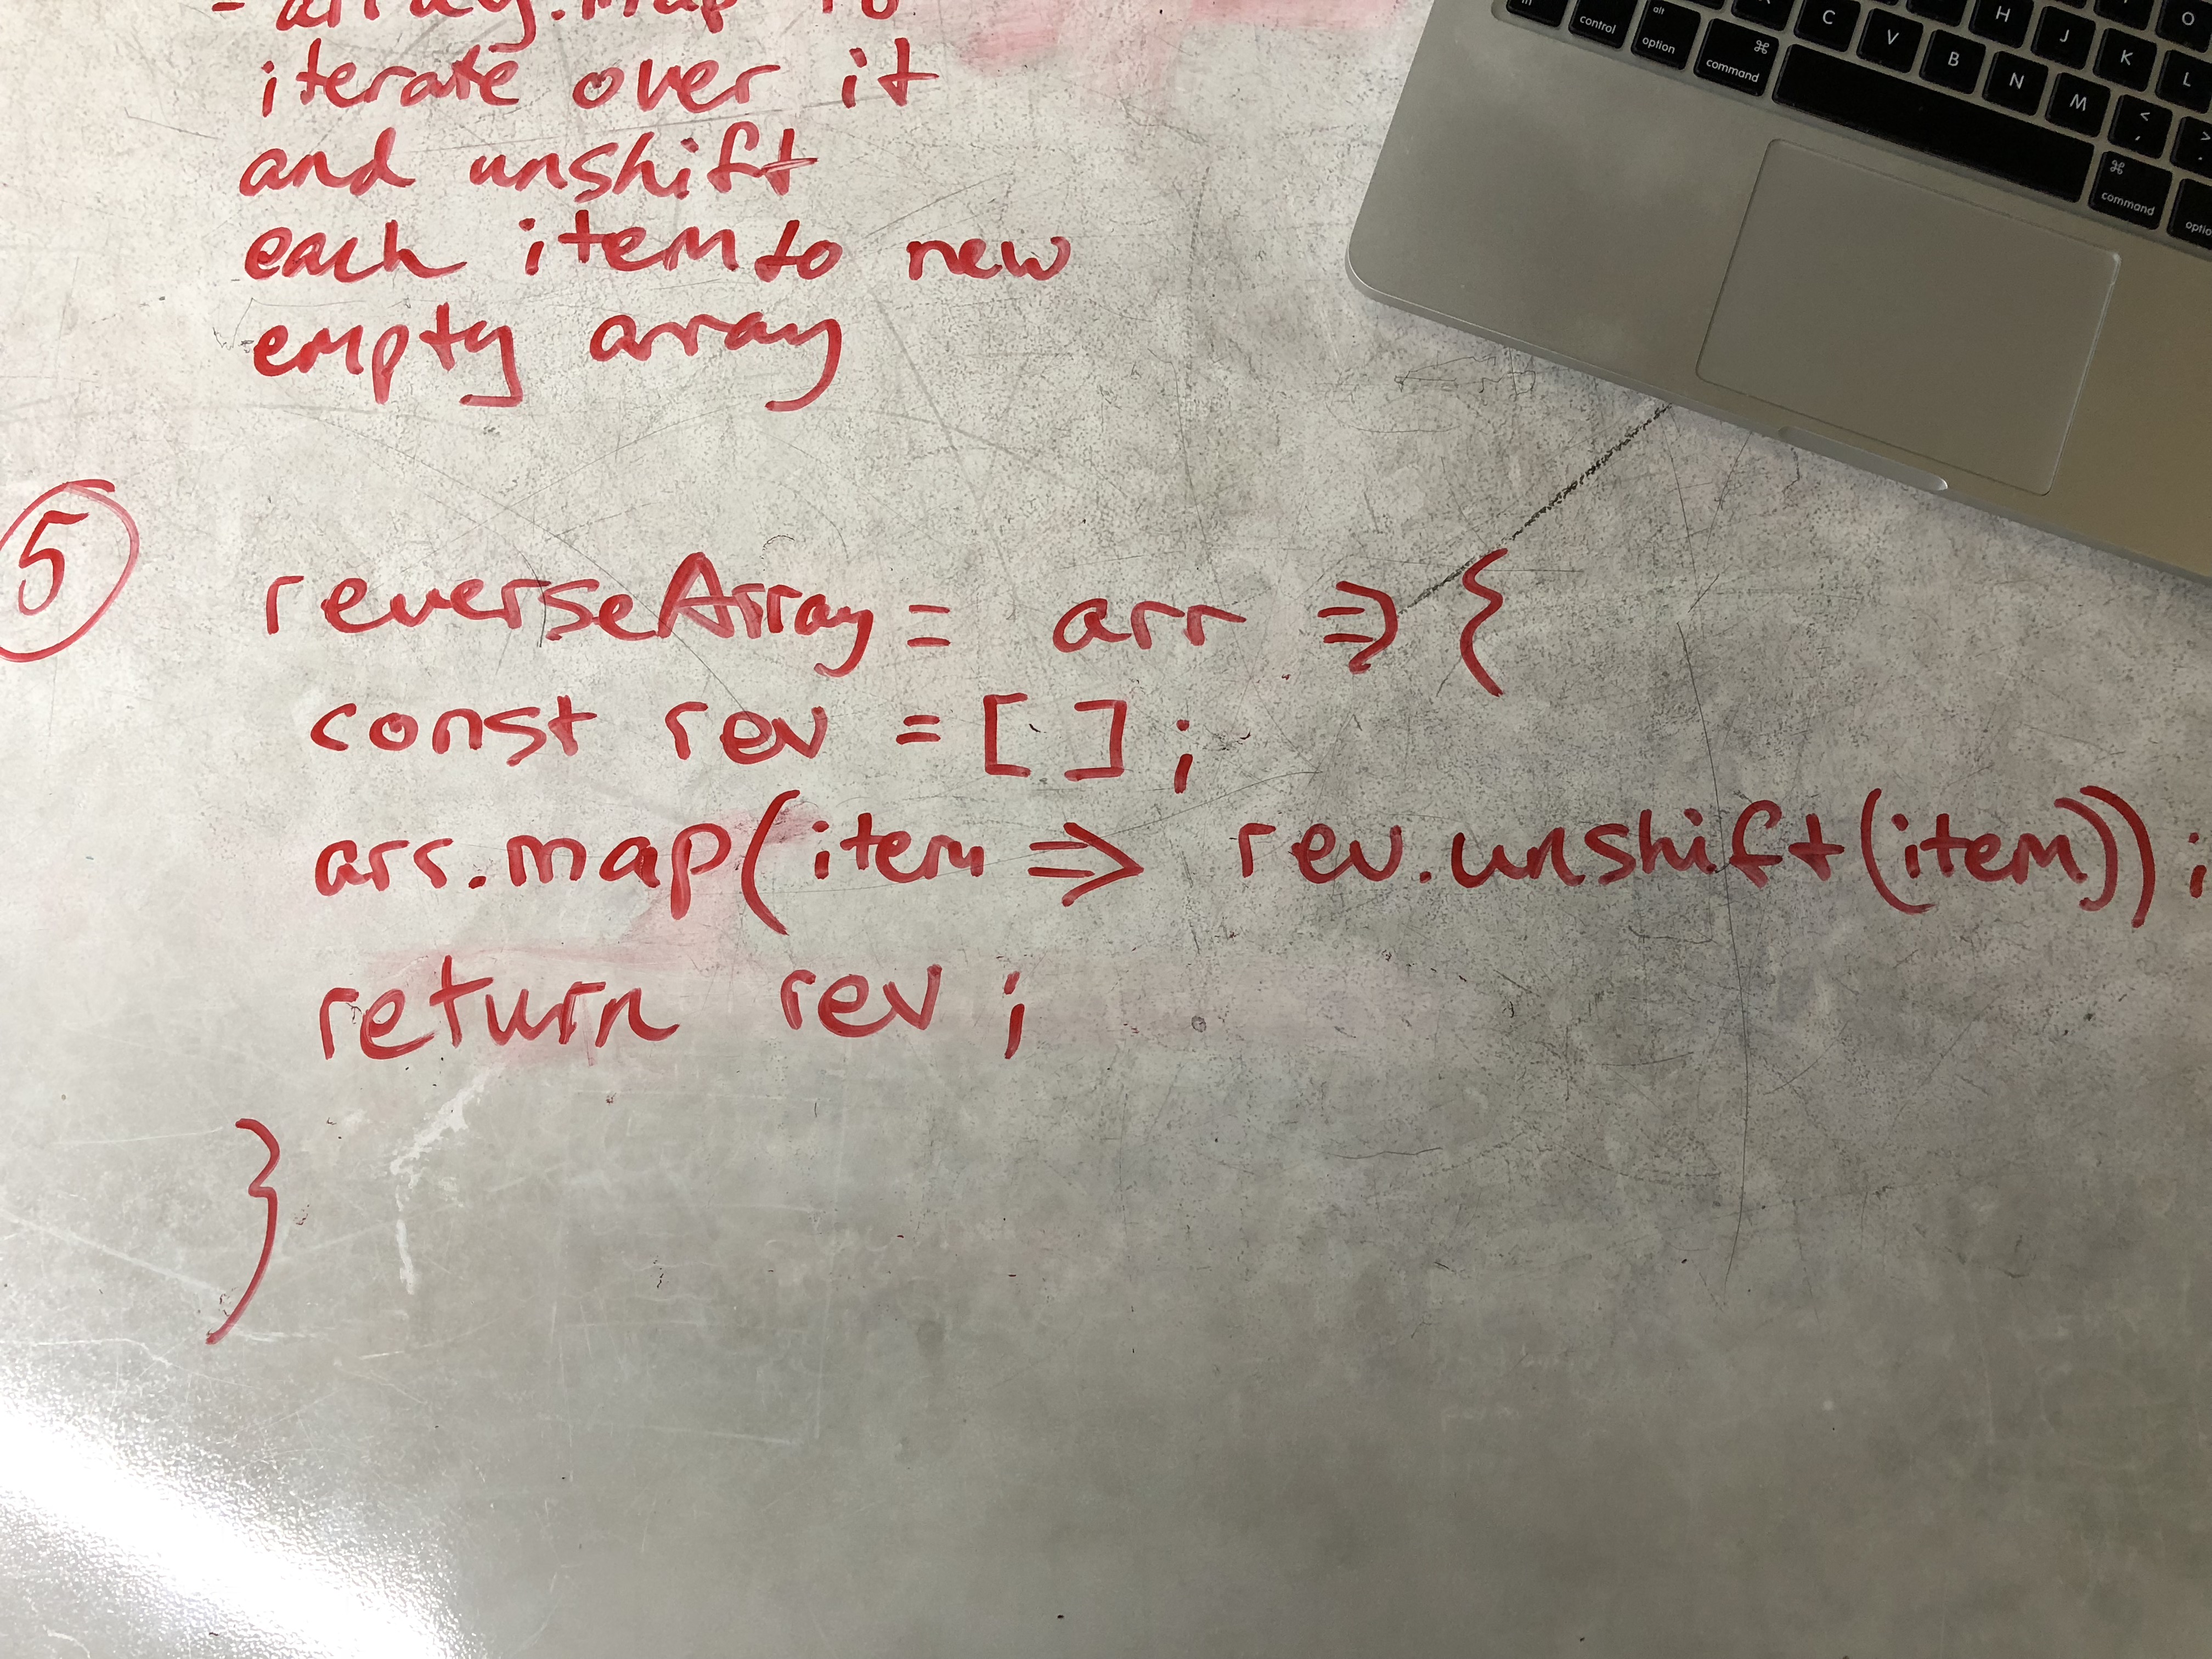 - array.map to
iterate over it
and unshift
each item to new
empty array
5
reverseArray = arr => {
const rev = [ ] ;
arr.map(item => rev.unshift(item));
return rev ;
}
control
alt
option
⌘
command
C
V
B
N
M
<
,
H
J
K
L
O
⌘
command